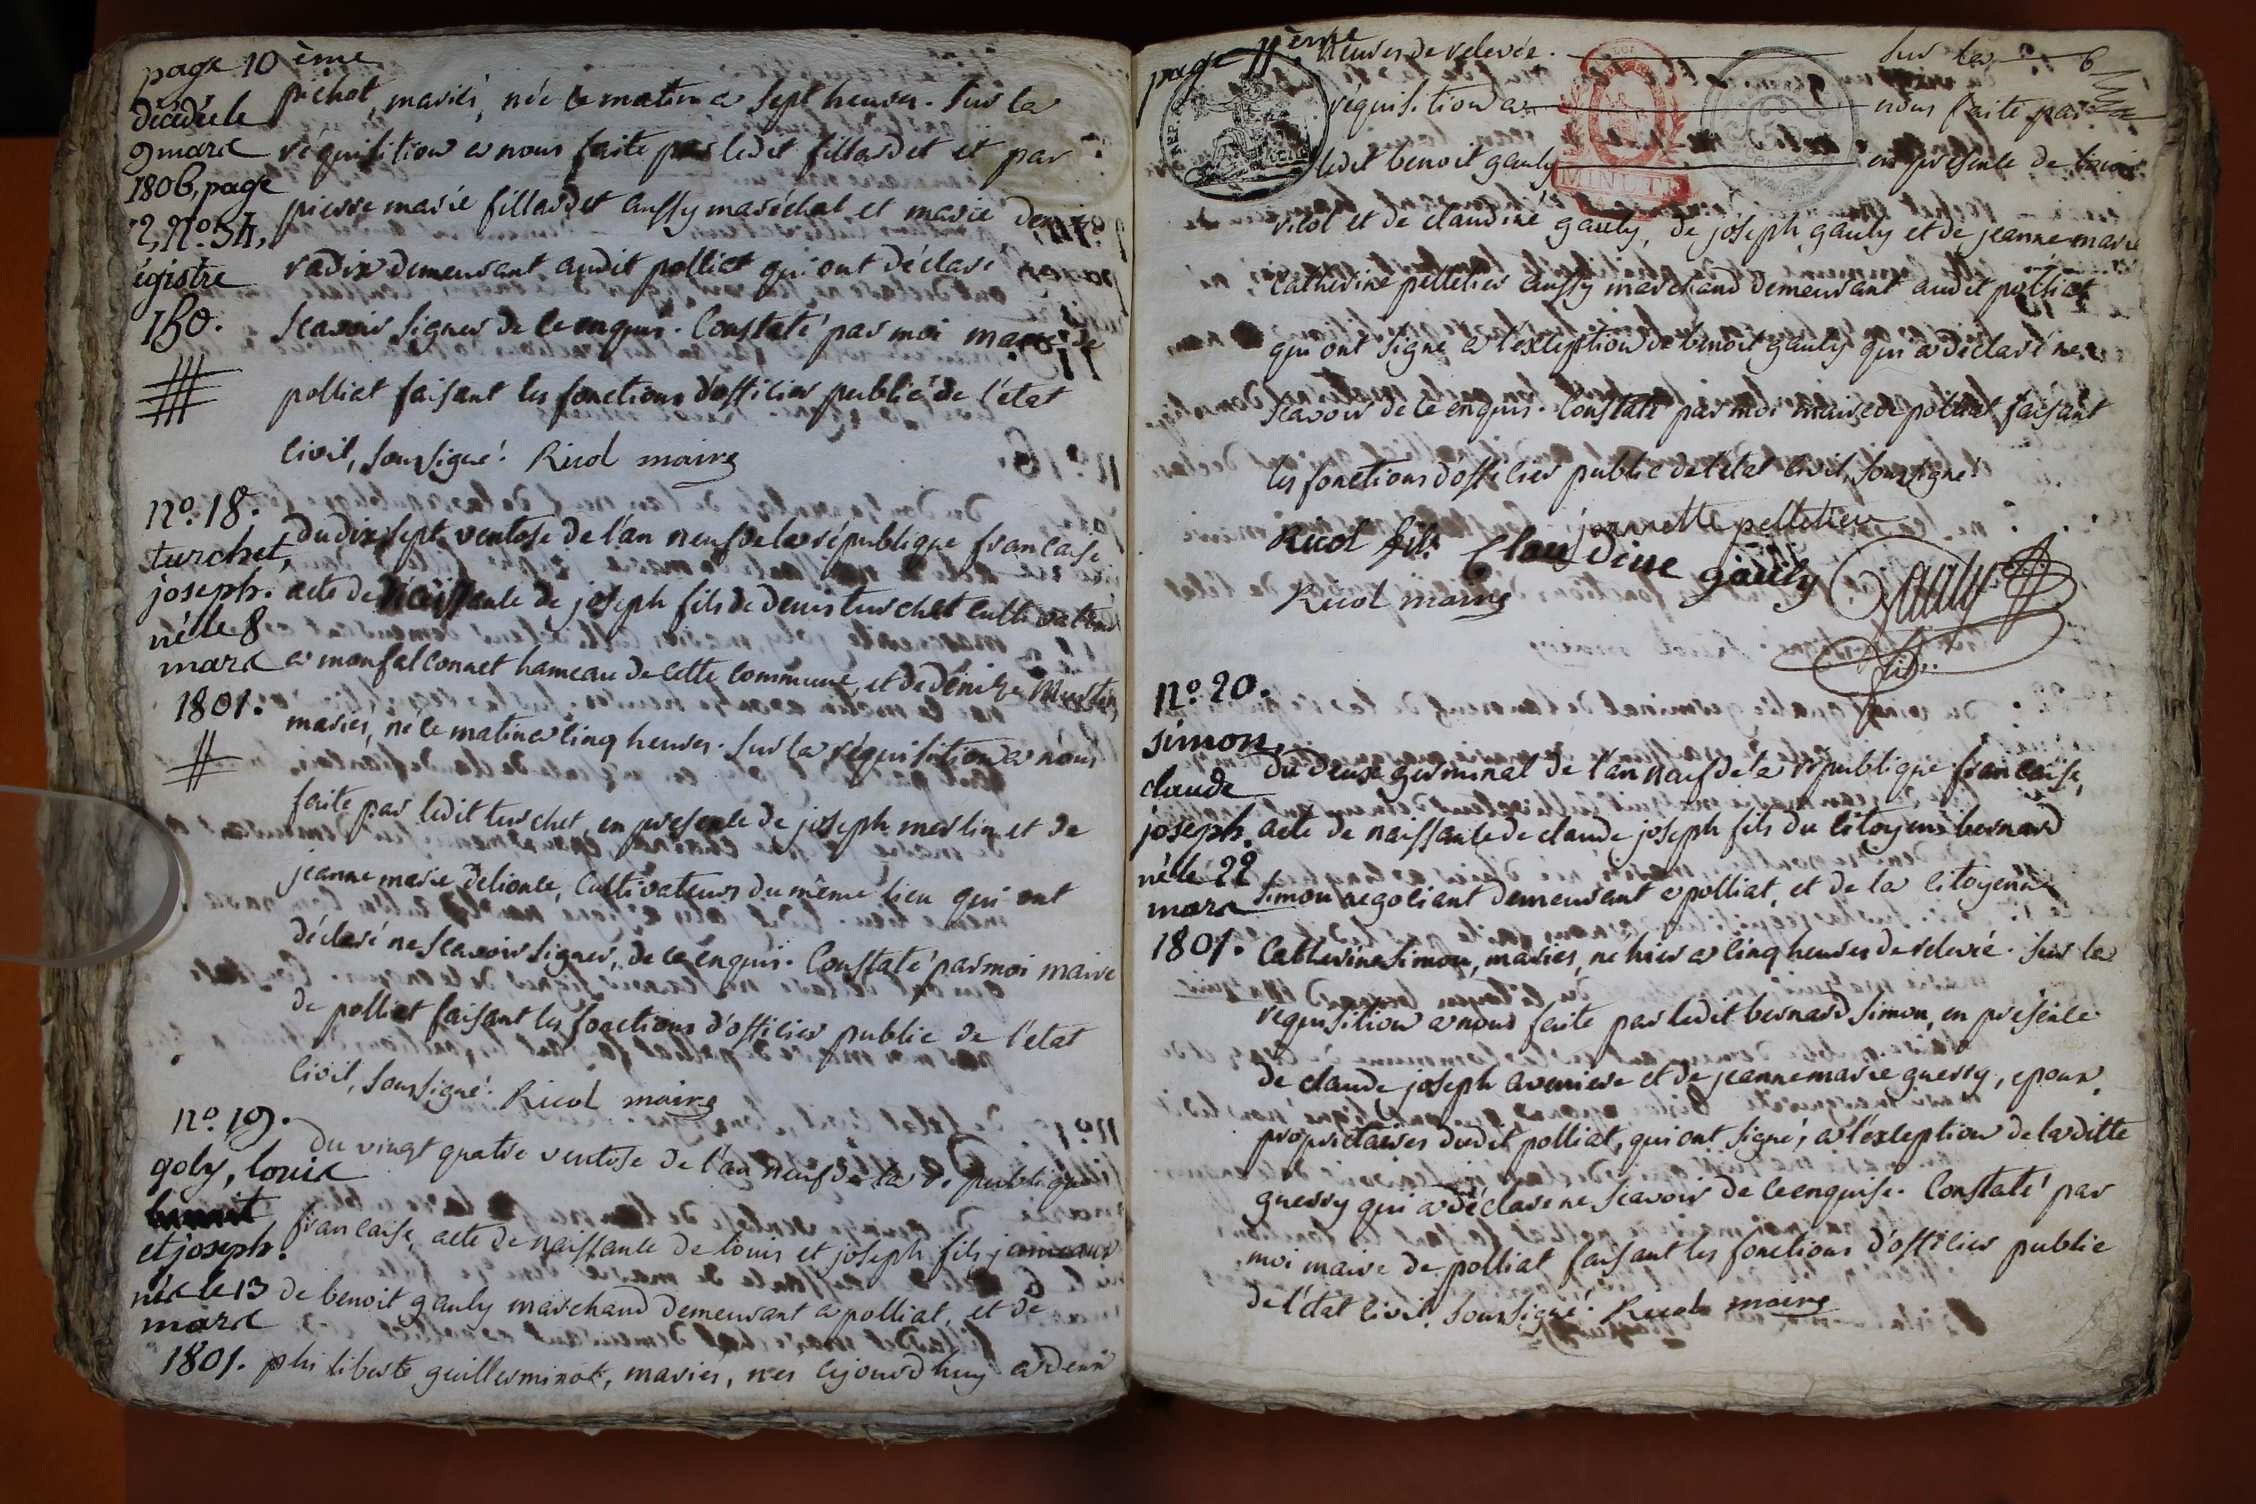 page 10 ème
décédée le
9 mars
1806, page
2, n.o 54,
égistre
150.
pichot, mariés, née ce matin a sept heures. Sur la
réquisition a nous faite par ledit fillardet et par
pierre marie fillardet aussy maréchal et marie
radix demeurant audit polliat qui ont déclaré
scavoir signer de ce enquis. Constaté par moi maire de
polliat faisant les fonctions d'officier public de l'état
civil, soussigné. Ricol maire
n.o 18.
turchet,
joseph.
né le 8
mars
1801.
du dix sept ventose de l'an neuf de la république francaise
acte de naissance de joseph fils de denis turchet cultivateur
a monfalconnet hameau de cette commune, et de denize
mariés, né ce matin a cinq heures. Sur la réquisition a nous
faite par ledit turchet, en presence de joseph merlin et de
jeanne marie delionle, cultivateurs du même lieu qui ont
déclaré ne scavoir signer, de ce enquis. Constaté par moi maire
de polliat faisant les fonctions d'officier public de l'état
civil, soussigné. Ricol maire
n.o 19.
goly, louis
et joseph.
nés le 13
mars
1801.
du vingt quatre ventose de l'an neuf de la république
francaise, acte de naissance de louis et joseph fils jumeaux
de benoit gauly marchand demeurant a polliat, et de
philiberte guillerminot, mariés, nés cejourd'huy a deux
page 11 ème
heures de relevée. Sur la 6
réquisition a nous faite par
ledit benoit gauly en presence de
MINUTE
ricol et de claudine gauly, de joseph gauly et de jeanne marie
catherine pelletier aussy marchand demeurant audit polliat
qui ont signé a l'exception de benoit gauly qui a déclaré ne
scavoir de ce enquis. Constaté par moi maire de polliat faisant
les fonctions d'officier public de l'état civil, soussigné.
jeannette pelletier
Ricol fils Claudine gauly Gauly
Ricol maire fils
n.o 20.
simon,
claude
joseph.
né le 22
mars
1801.
du deux germinal de l'an neuf de la république francaise,
acte de naissance de claude joseph fils du citoyen bernard
simon négociant demeurant a polliat, et de la citoyenne
Catherine simon, mariés, né hier a cinq heures de relevée. Sur la
réquisition a nous faite par ledit bernard simon, en présence
de claude joseph aveniere et de jeanne marie guerry, epoux,
propriétaires dudit polliat, qui ont signé, a l'exception de laditte
guerry qui a déclaré ne scavoir de ce enquise. Constaté par
moi maire de polliat faisant les fonctions d'officier public
de l'état civil, soussigné. Ricol maire